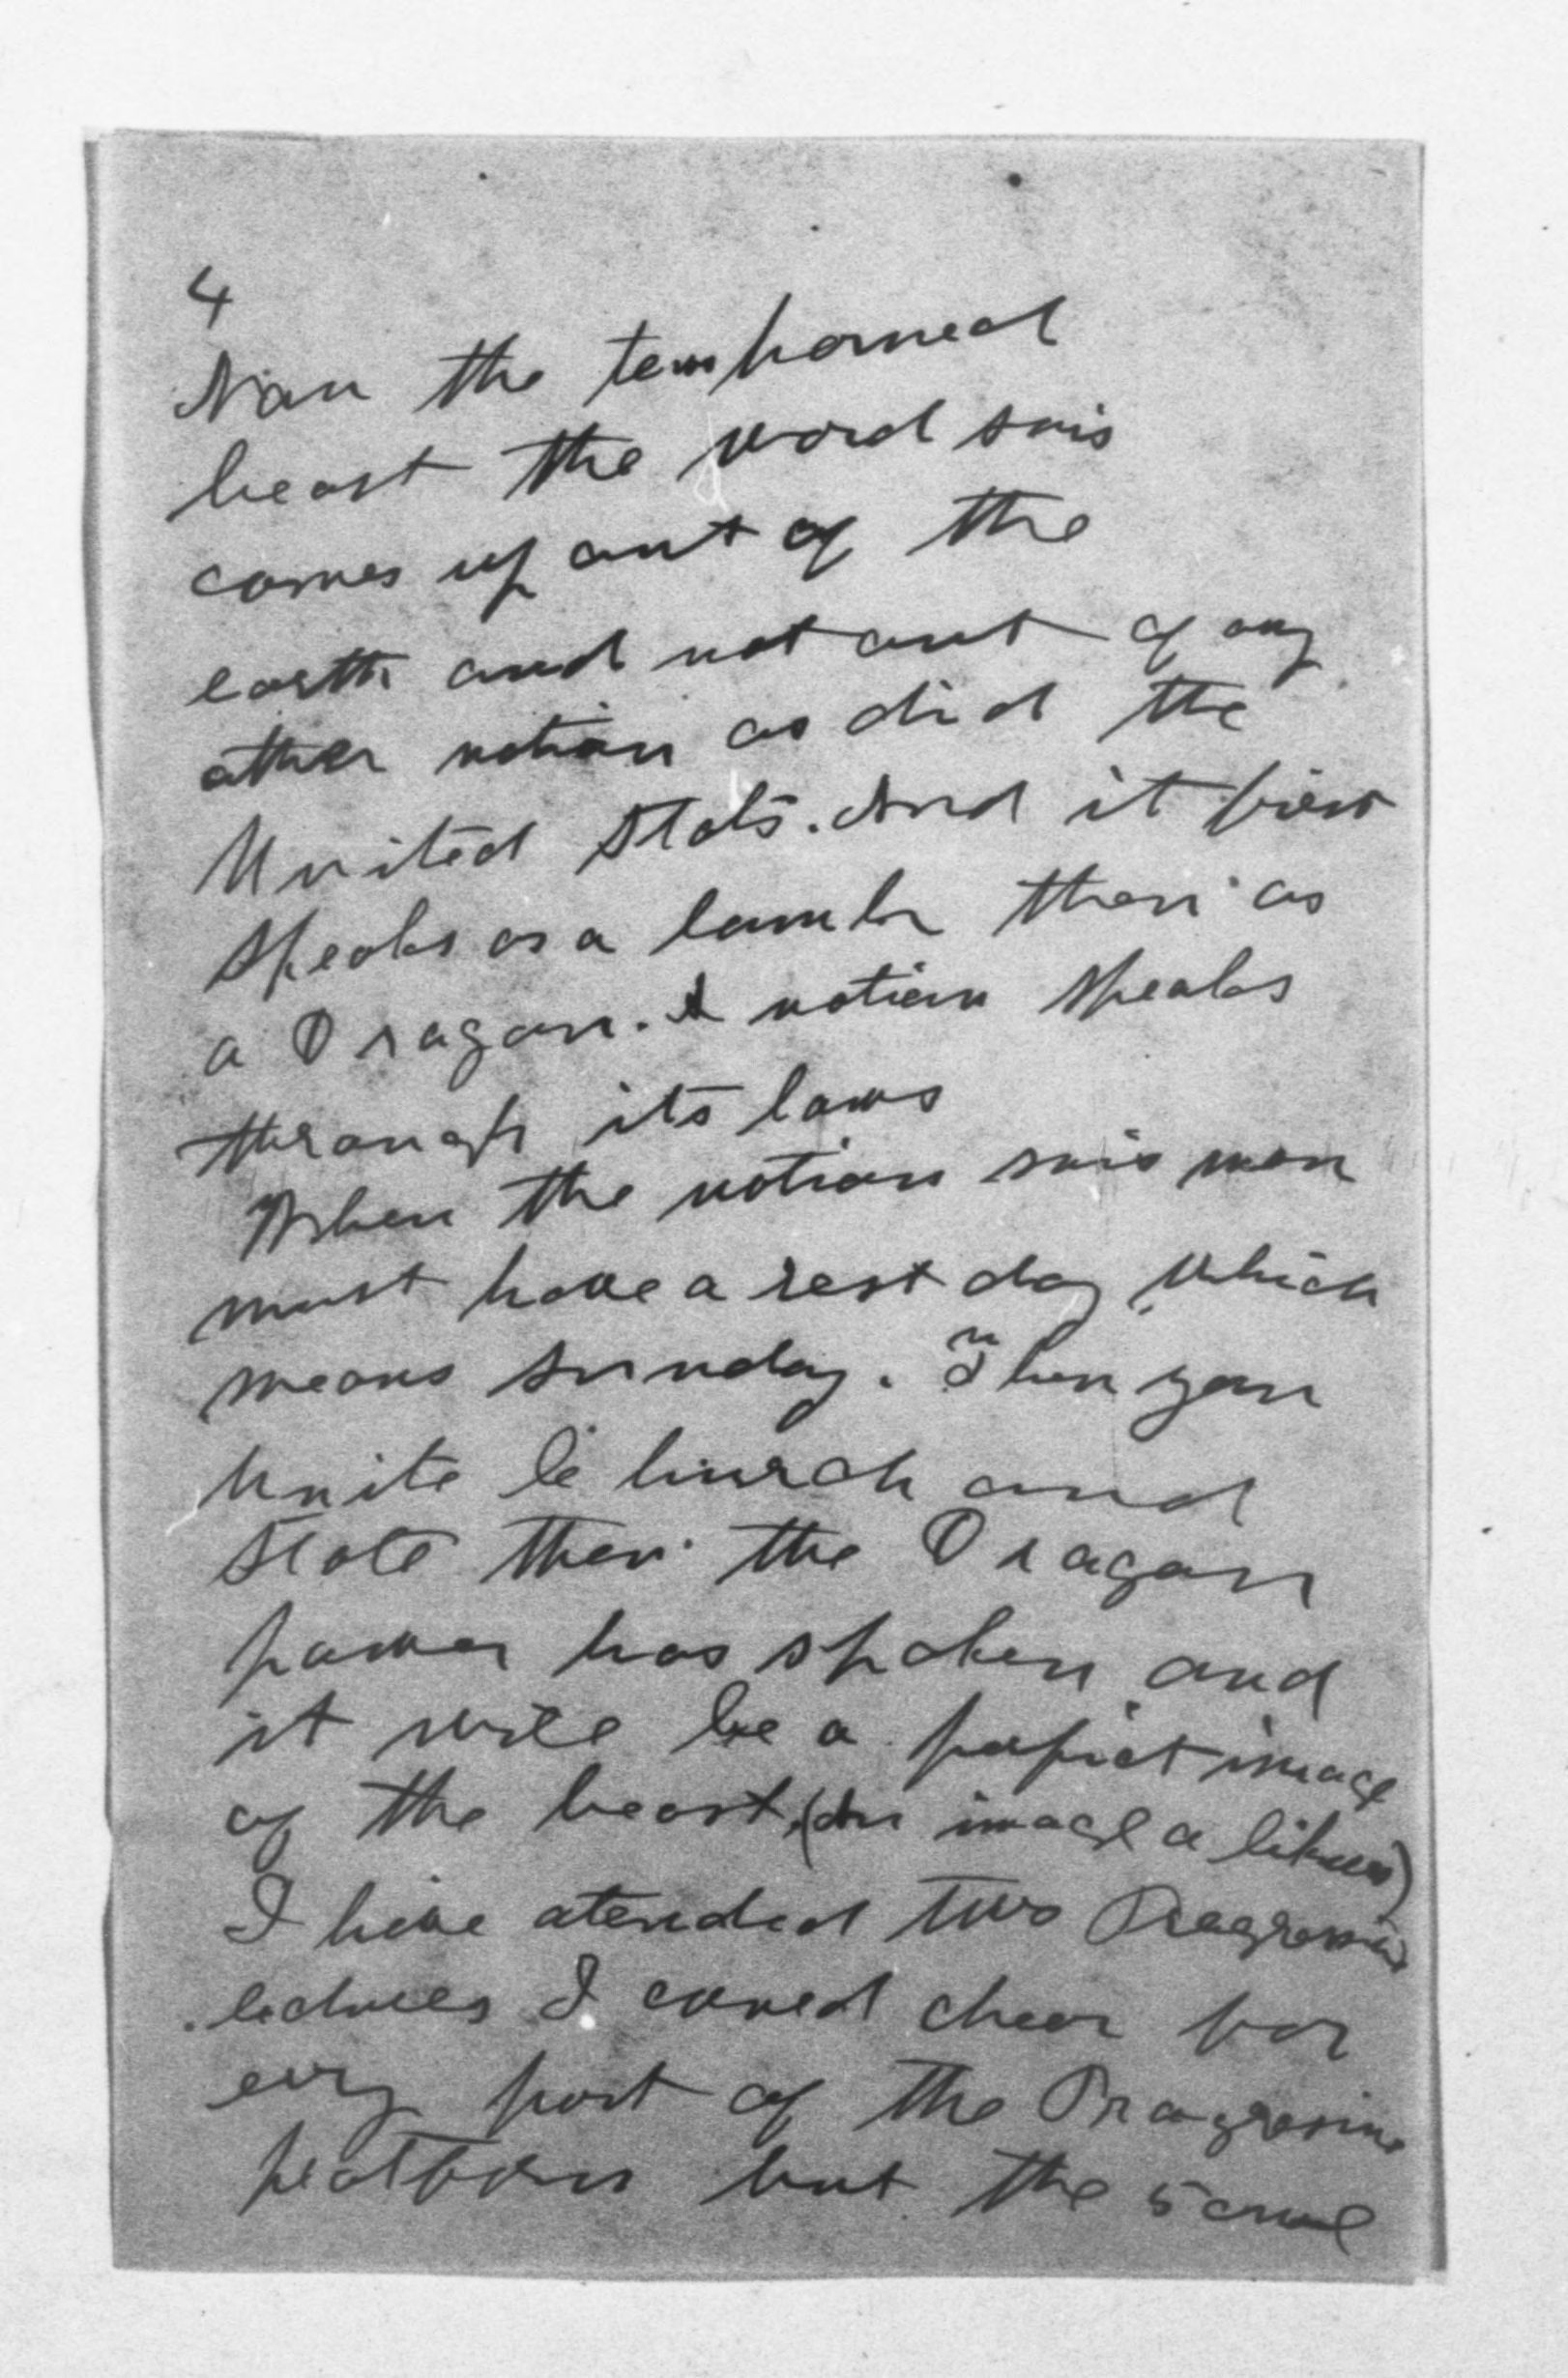 4
Now the tew horned
beast the word sais
comes up out of the
earth and not out of any
other nation as did the
United Stats. And it first
speaks as a lamb then as
a Dragon. A nation speaks
through its laws
When the nation sais man
must have a rest day which
means sunday. Then you
unite Church and
State then the Dragon
power has spoken and
it will be a image
of the beast. (An image a liknes)
I have atended two Progresive
lectures I could chear for
evry part of the Progresive
platform but the